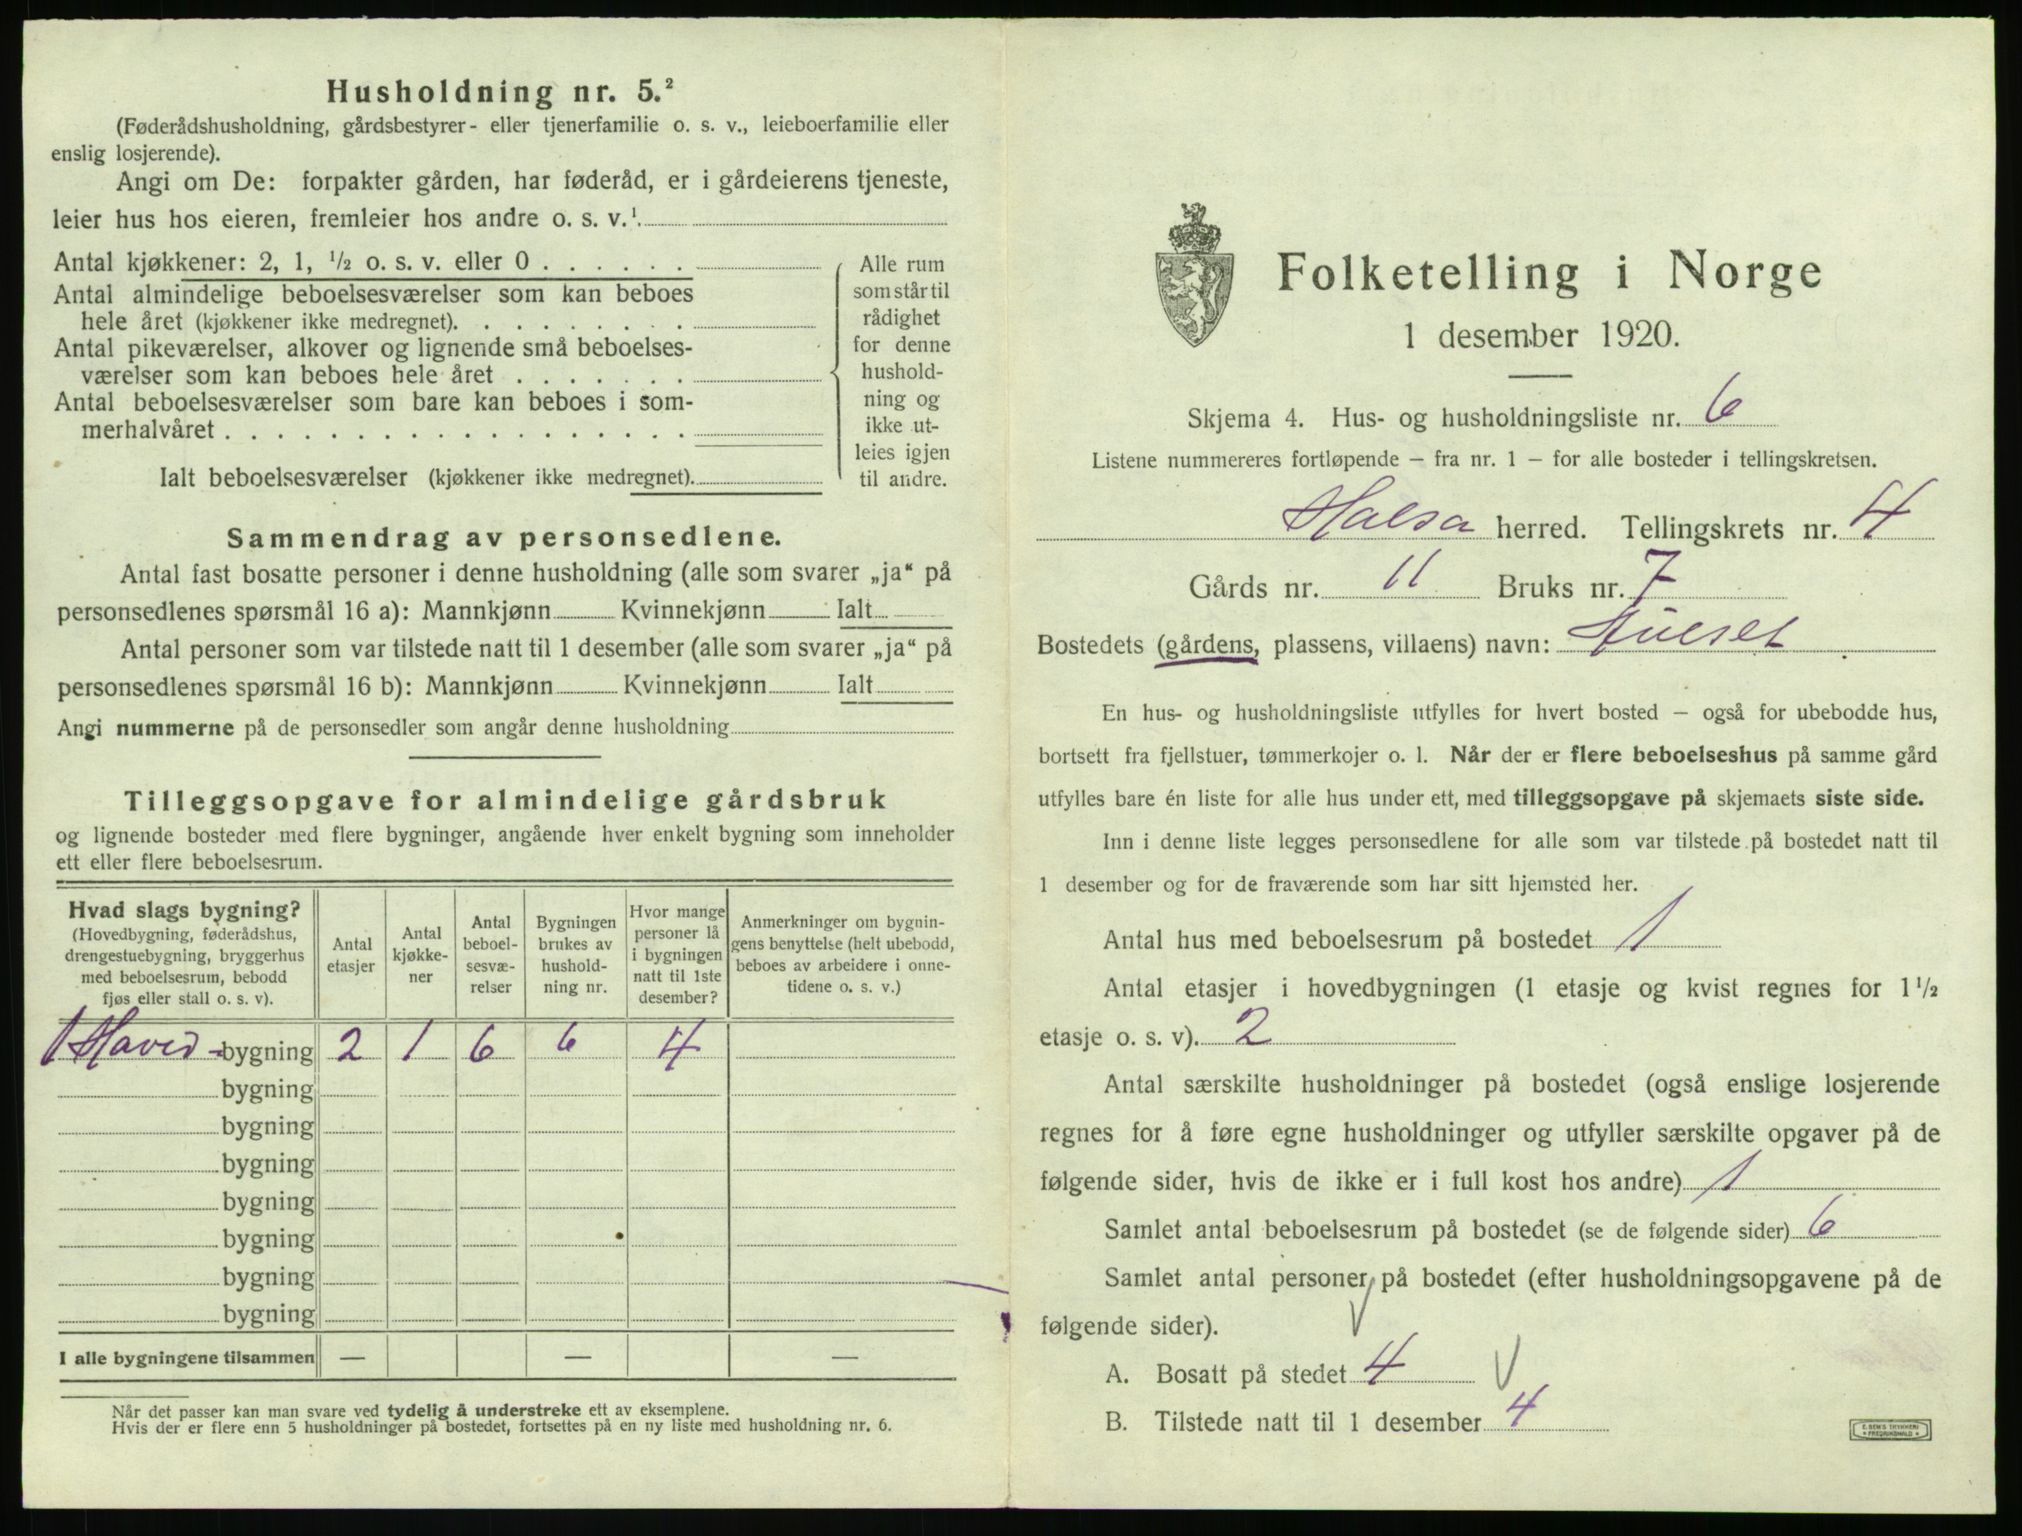 Husholdning nr. 5.²
(Føderådshusholdning, gårdsbestyrer- eller tjenerfamilie o. s. v., leieboerfamilie eller
enslig losjerende).
Angi om De: forpakter gården, har føderåd, er i gårdeierens tjeneste,
leier hus hos eieren, fremleier hos andre o. s. v.¹.
Antal kjøkkener: 2, 1, ¹/₂ o. s. v. eller 0 . . . . . .
Antal almindelige beboelsesværelser som kan beboes
hele året (kjøkkener ikke medregnet). . . . . . . . .
Antal pikeværelser, alkover og lignende små beboelses-
værelser som kan beboes hele året . . . . . . .
Antal beboelsesværelser som bare kan beboes i som-
merhalvåret . . . . . . . . . . . . . . . . . .
Ialt beboelsesværelser (kjøkkener ikke medregnet).
Alle rum
som står til
rådighet
for denne
hushold-
ning og
ikke ut-
leies igjen
til andre.
Sammendrag av personsedlene.
Antal fast bosatte personer i denne husholdning (alle som svarer „ja“ på
personsedlenes spørsmål 16 a): Mannkjønn Kvinnekjønn Ialt
Antal personer som var tilstede natt til 1 desember (alle som svarer „ja“ på
personsedlenes spørsmål 16 b): Mannkjønn Kvinnekjønn Ialt
Angi nummerne på de personsedler som angår denne husholdning
Tilleggsopgave for almindelige gårdsbruk
og lignende bosteder med flere bygninger, angående hver enkelt bygning som inneholder
ett eller flere beboelsesrum.
Hvad slags bygning?
(Hovedbygning, føderådshus,
drengestuebygning, bryggerhus
med beboelsesrum, bebodd
fjøs eller stall o. s. v).
Antal
etasjer
Antal
kjøkke-
ner
Antal
beboel-
sesvæ-
relser
Bygningen
brukes av
hushold-
ning nr.
Hvor mange
personer lå
i bygningen
natt til 1ste
desember?
Anmerkninger om bygnin-
gens benyttelse (helt ubebodd,
beboes av arbeidere i onne-
tidene o. s. v.)
1 Hoved-bygning 2 1 6 6 4
bygning
bygning
bygning
bygning
bygning
bygning
bygning
I alle bygningene tilsammen — — —
Når det passer kan man svare ved tydelig å understreke ett av eksemplene.
Hvis der er flere enn 5 husholdninger på bostedet, fortsettes på en ny liste med husholdning nr. 6.
Folketelling i Norge
1 desember 1920.
Skjema 4. Hus- og husholdningsliste nr. 6
Listene nummereres fortløpende — fra nr. 1 — for alle bosteder i tellingskretsen.
Halsa herred. Tellingskrets nr. 4
Gårds nr. 11 Bruks nr. 7
Bostedets (gårdens, plassens, villaens) navn:
En hus- og husholdningsliste utfylles for hvert bosted — også for ubebodde hus,
bortsett fra fjellstuer, tømmerkojer o. l. Når der er flere beboelseshus på samme gård
utfylles bare én liste for alle hus under ett, med tilleggsopgave på skjemaets siste side.
Inn i denne liste legges personsedlene for alle som var tilstede på bostedet natt til
1 desember og for de fraværende som har sitt hjemsted her.
Antal hus med beboelsesrum på bostedet 1
Antal etasjer i hovedbygningen (1 etasje og kvist regnes for 1 ¹/₂
etasje o. s. v). 2
Antal særskilte husholdninger på bostedet (også enslige losjerende
regnes for å føre egne husholdninger og utfyller særskilte opgaver på de
følgende sider, hvis de ikke er i full kost hos andre) 1
Samlet antal beboelsesrum på bostedet (se de følgende sider) 6
Samlet antal personer på bostedet (efter husholdningsopgavene på de
følgende sider).
A. Bosatt på stedet 4
B. Tilstede natt til 1 desember 4